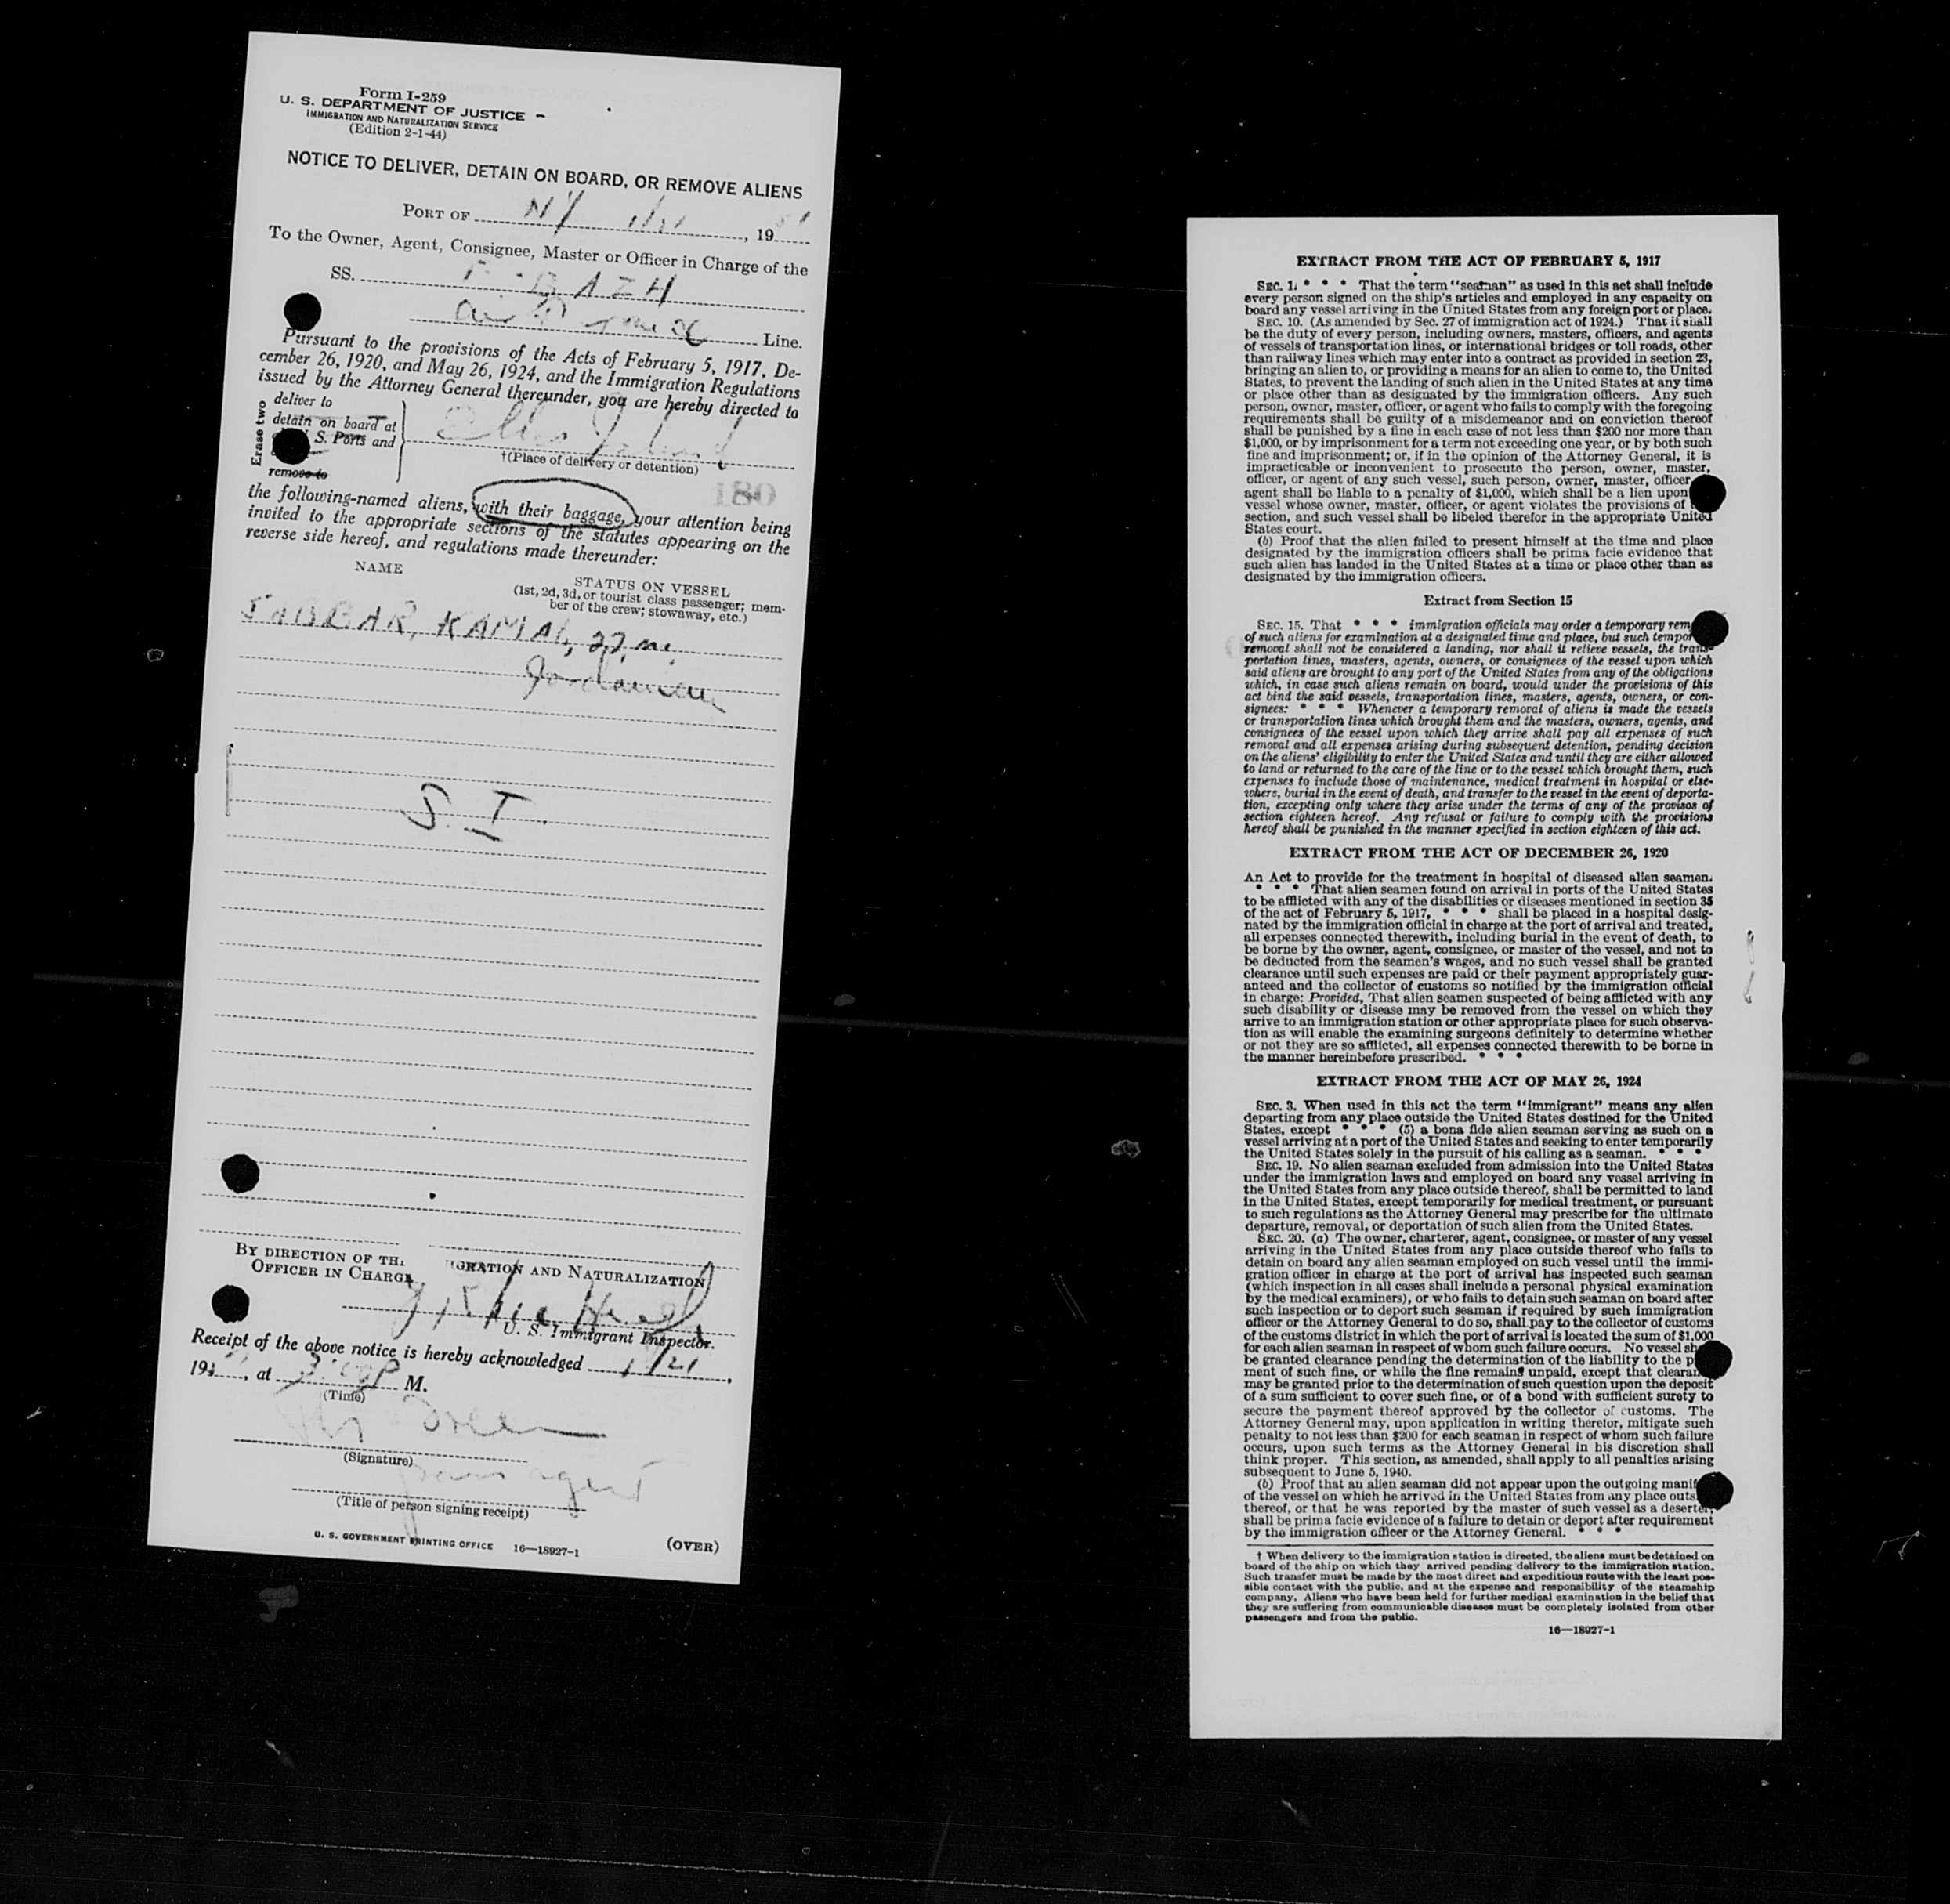 Form I-259
U. S. DEPARTMENT OF JUSTICE
IMMIGRATION AND NATURALIZATION SERVICE
(Edition 2-1-44)
NOTICE TO DELIVER, DETAIN ON BOARD, OR REMOVE ALIENS
PORT OF NY , 19 51
To the Owner, Agent, Consignee, Master or Officer in Charge of the
SS. F-BAZH
Air France Line.
Pursuant to the provisions of the Acts of February 5, 1917, De-
cember 26, 1920, and May 26, 1924, and the Immigration Regulations
issued by the Attorney General thereunder, you are hereby directed to
Erase two
deliver to
detain on board at
S. Ports and
remove to
Ellis Island
†(Place of delivery or detention)
081
the following-named aliens, with their baggage, your attention being
invited to the appropriate sections of the statutes appearing on the
reverse side hereof, and regulations made thereunder:
NAME
STATUS ON VESSEL
(1st, 2d, 3d, or tourist class passenger; mem-
ber of the crew; stowaway, etc.)
JABBAR, KAMAL, 22, m.
Jordanian
S. I.
BY DIRECTION OF TH IGRATION AND NATURALIZATION
OFFICER IN CHARGE
U. S. Immigrant Inspector.
Receipt of the above notice is hereby acknowledged 1/21,
19 , at 3: P M.
(Time)
(Signature)
agent
(Title of person signing receipt)
U. S. GOVERNMENT PRINTING OFFICE 16—18927-1
(OVER)
EXTRACT FROM THE ACT OF FEBRUARY 5, 1917
SEC. 1. * * * That the term "seaman" as used in this act shall include
every person signed on the ship's articles and employed in any capacity on
board any vessel arriving in the United States from any foreign port or place.
SEC. 10. (As amended by Sec. 27 of immigration act of 1924.) That it shall
be the duty of every person, including owners, masters, officers, and agents
of vessels of transportation lines, or international bridges or toll roads, other
than railway lines which may enter into a contract as provided in section 23,
bringing an alien to, or providing a means for an alien to come to, the United
States, to prevent the landing of such alien in the United States at any time
or place other than as designated by the immigration officers. Any such
person, owner, master, officer, or agent who fails to comply with the foregoing
requirements shall be guilty of a misdemeanor and on conviction thereof
shall be punished by a fine in each case of not less than $200 nor more than
$1,000, or by imprisonment for a term not exceeding one year, or by both such
fine and imprisonment; or, if in the opinion of the Attorney General, it is
impracticable or inconvenient to prosecute the person, owner, master,
officer, or agent of any such vessel, such person, owner, master, officer
agent shall be liable to a penalty of $1,000, which shall be a lien upon
vessel whose owner, master, officer, or agent violates the provisions of
section, and such vessel shall be libeled therefor in the appropriate United
States court.
(b) Proof that the alien failed to present himself at the time and place
designated by the immigration officers shall be prima facie evidence that
such alien has landed in the United States at a time or place other than as
designated by the immigration officers.
Extract from Section 15
SEC. 15. That * * * immigration officials may order a temporary rem
of such aliens for examination at a designated time and place, but such tempor
removal shall not be considered a landing, nor shall it relieve vessels, the trans-
portation lines, masters, agents, owners, or consignees of the vessel upon which
said aliens are brought to any port of the United States from any of the obligations
which, in case such aliens remain on board, would under the provisions of this
act bind the said vessels, transportation lines, masters, agents, owners, or con-
signees: * * * Whenever a temporary removal of aliens is made the vessels
or transportation lines which brought them and the masters, owners, agents, and
consignees of the vessel upon which they arrive shall pay all expenses of such
removal and all expenses arising during subsequent detention, pending decision
on the aliens' eligibility to enter the United States and until they are either allowed
to land or returned to the care of the line or to the vessel which brought them, such
expenses to include those of maintenance, medical treatment in hospital or else-
where, burial in the event of death, and transfer to the vessel in the event of deporta-
tion, excepting only where they arise under the terms of any of the provisos of
section eighteen hereof. Any refusal or failure to comply with the provisions
hereof shall be punished in the manner specified in section eighteen of this act.
EXTRACT FROM THE ACT OF DECEMBER 26, 1920
An Act to provide for the treatment in hospital of diseased alien seamen.
* * * That alien seamen found on arrival in ports of the United States
to be afflicted with any of the disabilities or diseases mentioned in section 35
of the act of February 5, 1917, * * * shall be placed in a hospital desig-
nated by the immigration official in charge at the port of arrival and treated,
all expenses connected therewith, including burial in the event of death, to
be borne by the owner, agent, consignee, or master of the vessel, and not to
be deducted from the seamen's wages, and no such vessel shall be granted
clearance until such expenses are paid or their payment appropriately guar-
anteed and the collector of customs so notified by the immigration official
in charge: Provided, That alien seamen suspected of being afflicted with any
such disability or disease may be removed from the vessel on which they
arrive to an immigration station or other appropriate place for such observa-
tion as will enable the examining surgeons definitely to determine whether
or not they are so afflicted, all expenses connected therewith to be borne in
the manner hereinbefore prescribed. * * *
EXTRACT FROM THE ACT OF MAY 26, 1924
SEC. 3. When used in this act the term "immigrant" means any alien
departing from any place outside the United States destined for the United
States, except * * * (5) a bona fide alien seaman serving as such on a
vessel arriving at a port of the United States and seeking to enter temporarily
the United States solely in the pursuit of his calling as a seaman. * * *
SEC. 19. No alien seaman excluded from admission into the United States
under the immigration laws and employed on board any vessel arriving in
the United States from any place outside thereof, shall be permitted to land
in the United States, except temporarily for medical treatment, or pursuant
to such regulations as the Attorney General may prescribe for the ultimate
departure, removal, or deportation of such alien from the United States.
SEC. 20. (a) The owner, charterer, agent, consignee, or master of any vessel
arriving in the United States from any place outside thereof who fails to
detain on board any alien seaman employed on such vessel until the immi-
gration officer in charge at the port of arrival has inspected such seaman
(which inspection in all cases shall include a personal physical examination
by the medical examiners), or who fails to detain such seaman on board after
such inspection or to deport such seaman if required by such immigration
officer or the Attorney General to do so, shall pay to the collector of customs
of the customs district in which the port of arrival is located the sum of $1,000
for each alien seaman in respect of whom such failure occurs. No vessel sh
be granted clearance pending the determination of the liability to the p
ment of such fine, or while the fine remains unpaid, except that clearan
may be granted prior to the determination of such question upon the deposit
of a sum sufficient to cover such fine, or of a bond with sufficient surety to
secure the payment thereof approved by the collector of customs. The
Attorney General may, upon application in writing therefor, mitigate such
penalty to not less than $200 for each seaman in respect of whom such failure
occurs, upon such terms as the Attorney General in his discretion shall
think proper. This section, as amended, shall apply to all penalties arising
subsequent to June 5, 1940.
(b) Proof that an alien seaman did not appear upon the outgoing manif
of the vessel on which he arrived in the United States from any place outs
thereof, or that he was reported by the master of such vessel as a deserter,
shall be prima facie evidence of a failure to detain or deport after requirement
by the immigration officer or the Attorney General. * * *
† When delivery to the immigration station is directed, the aliens must be detained on
board of the ship on which they arrived pending delivery to the immigration station.
Such transfer must be made by the most direct and expeditious route with the least pos-
sible contact with the public, and at the expense and responsibility of the steamship
company. Aliens who have been held for further medical examination in the belief that
they are suffering from communicable diseases must be completely isolated from other
passengers and from the public.
16—18927-1